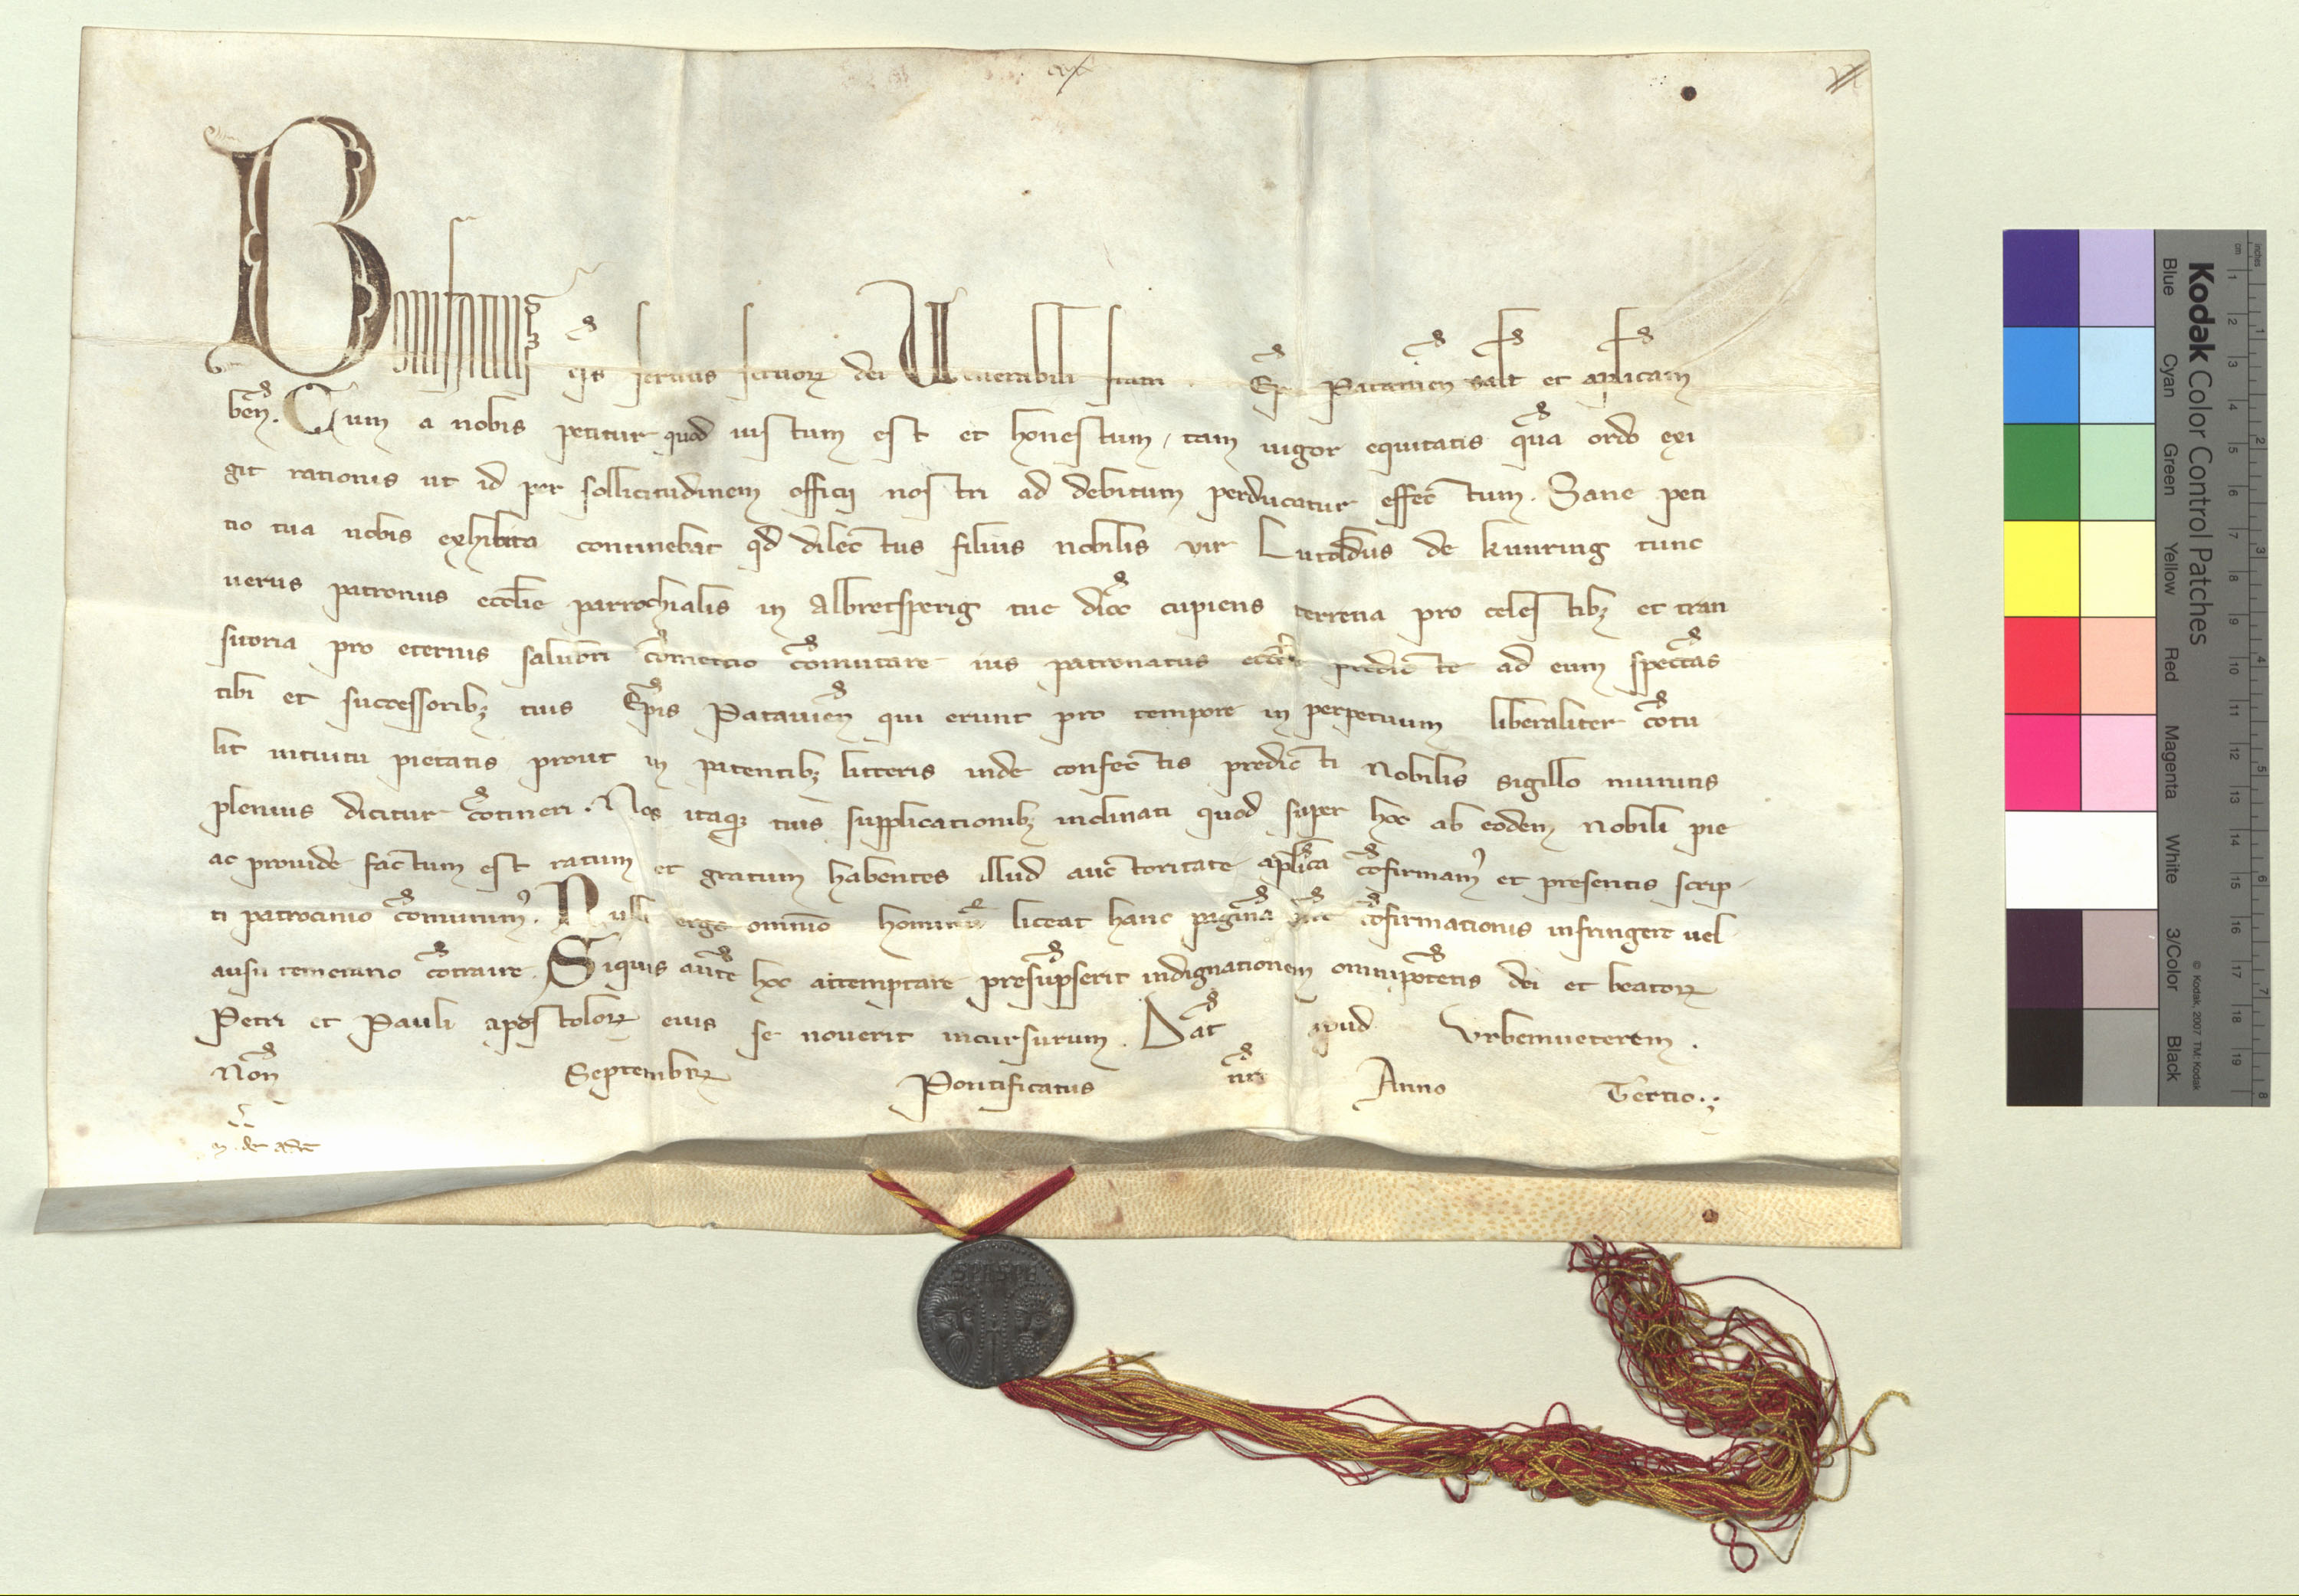 Bonifatius ep̄s seruus seruoꝝ dei Uenerabili fratri . Ep̄o Patauien̄ salt̄ et ap̄licam
ben̄. Cum a nobis petitur quod iustum est et honestum, tam uigor equitatis qua̅ ordo exi
git rationis ut id per sollicitudinem officij nostri ad debitum perducatur effectum. Sane peti
tio tua nobis exhibita continebat qd̄ dilectus filius nobilis vir Lutoldus de kunring tunc
uerus patronus eccl̄ie parrochialis in Albretsperig tue dioc̄ cupiens terrena pro celestibꝫ et tran
sitoria pro eternis salubri co̅mertio co̅mutare ius patronatus eccl̄ie predicte ad eum specta̅s
tibi et successoribꝫ tuis Ep̄is Patauien̄ qui erunt pro tempore in perpetuum liberaliter co̅tu
lit intuitu pietatis prout in patentibꝫ litteris inde confectis predicti Nobilis sigillo munitis
plenius dicitur co̅tineri. Nos itaqꝫ tuis supplicationibꝫ inclinati quod super hoc ab eodem Nobili pie
ac prouide factum est ratum et gratum habentes illud auctoritate ap̄lica co̅firmamꝰ et presentis scrip-
ti patrocinio co̅munimꝰ. Nulli ergo omnino hominu̅ liceat hanc pagina̅ nr̄e co̅firmationis infringere uel
ausu temerario co̅traire. Siquis aute̅ hoc attemptare presu̅pserit indignationem omnipote̅tis dei et beatoꝝ
Petri et Pauli apostoloꝝ eius se nouerit incursurum. Dat̄ apud Vrbemueterem.
Non̄ Septembrꝝ Pontificatus nr̄i Anno Tertio.
SPASPE
Kodak Color Control Patches
Blue Cyan Green Yellow Red Magenta White 3/Color Black
© Kodak, 2007 TM: Kodak
inches 1 2 3 4 5 6 7 8
cm 1 2 3 4 5 6 7 8 9 10 11 12 13 14 15 16 17 18 19